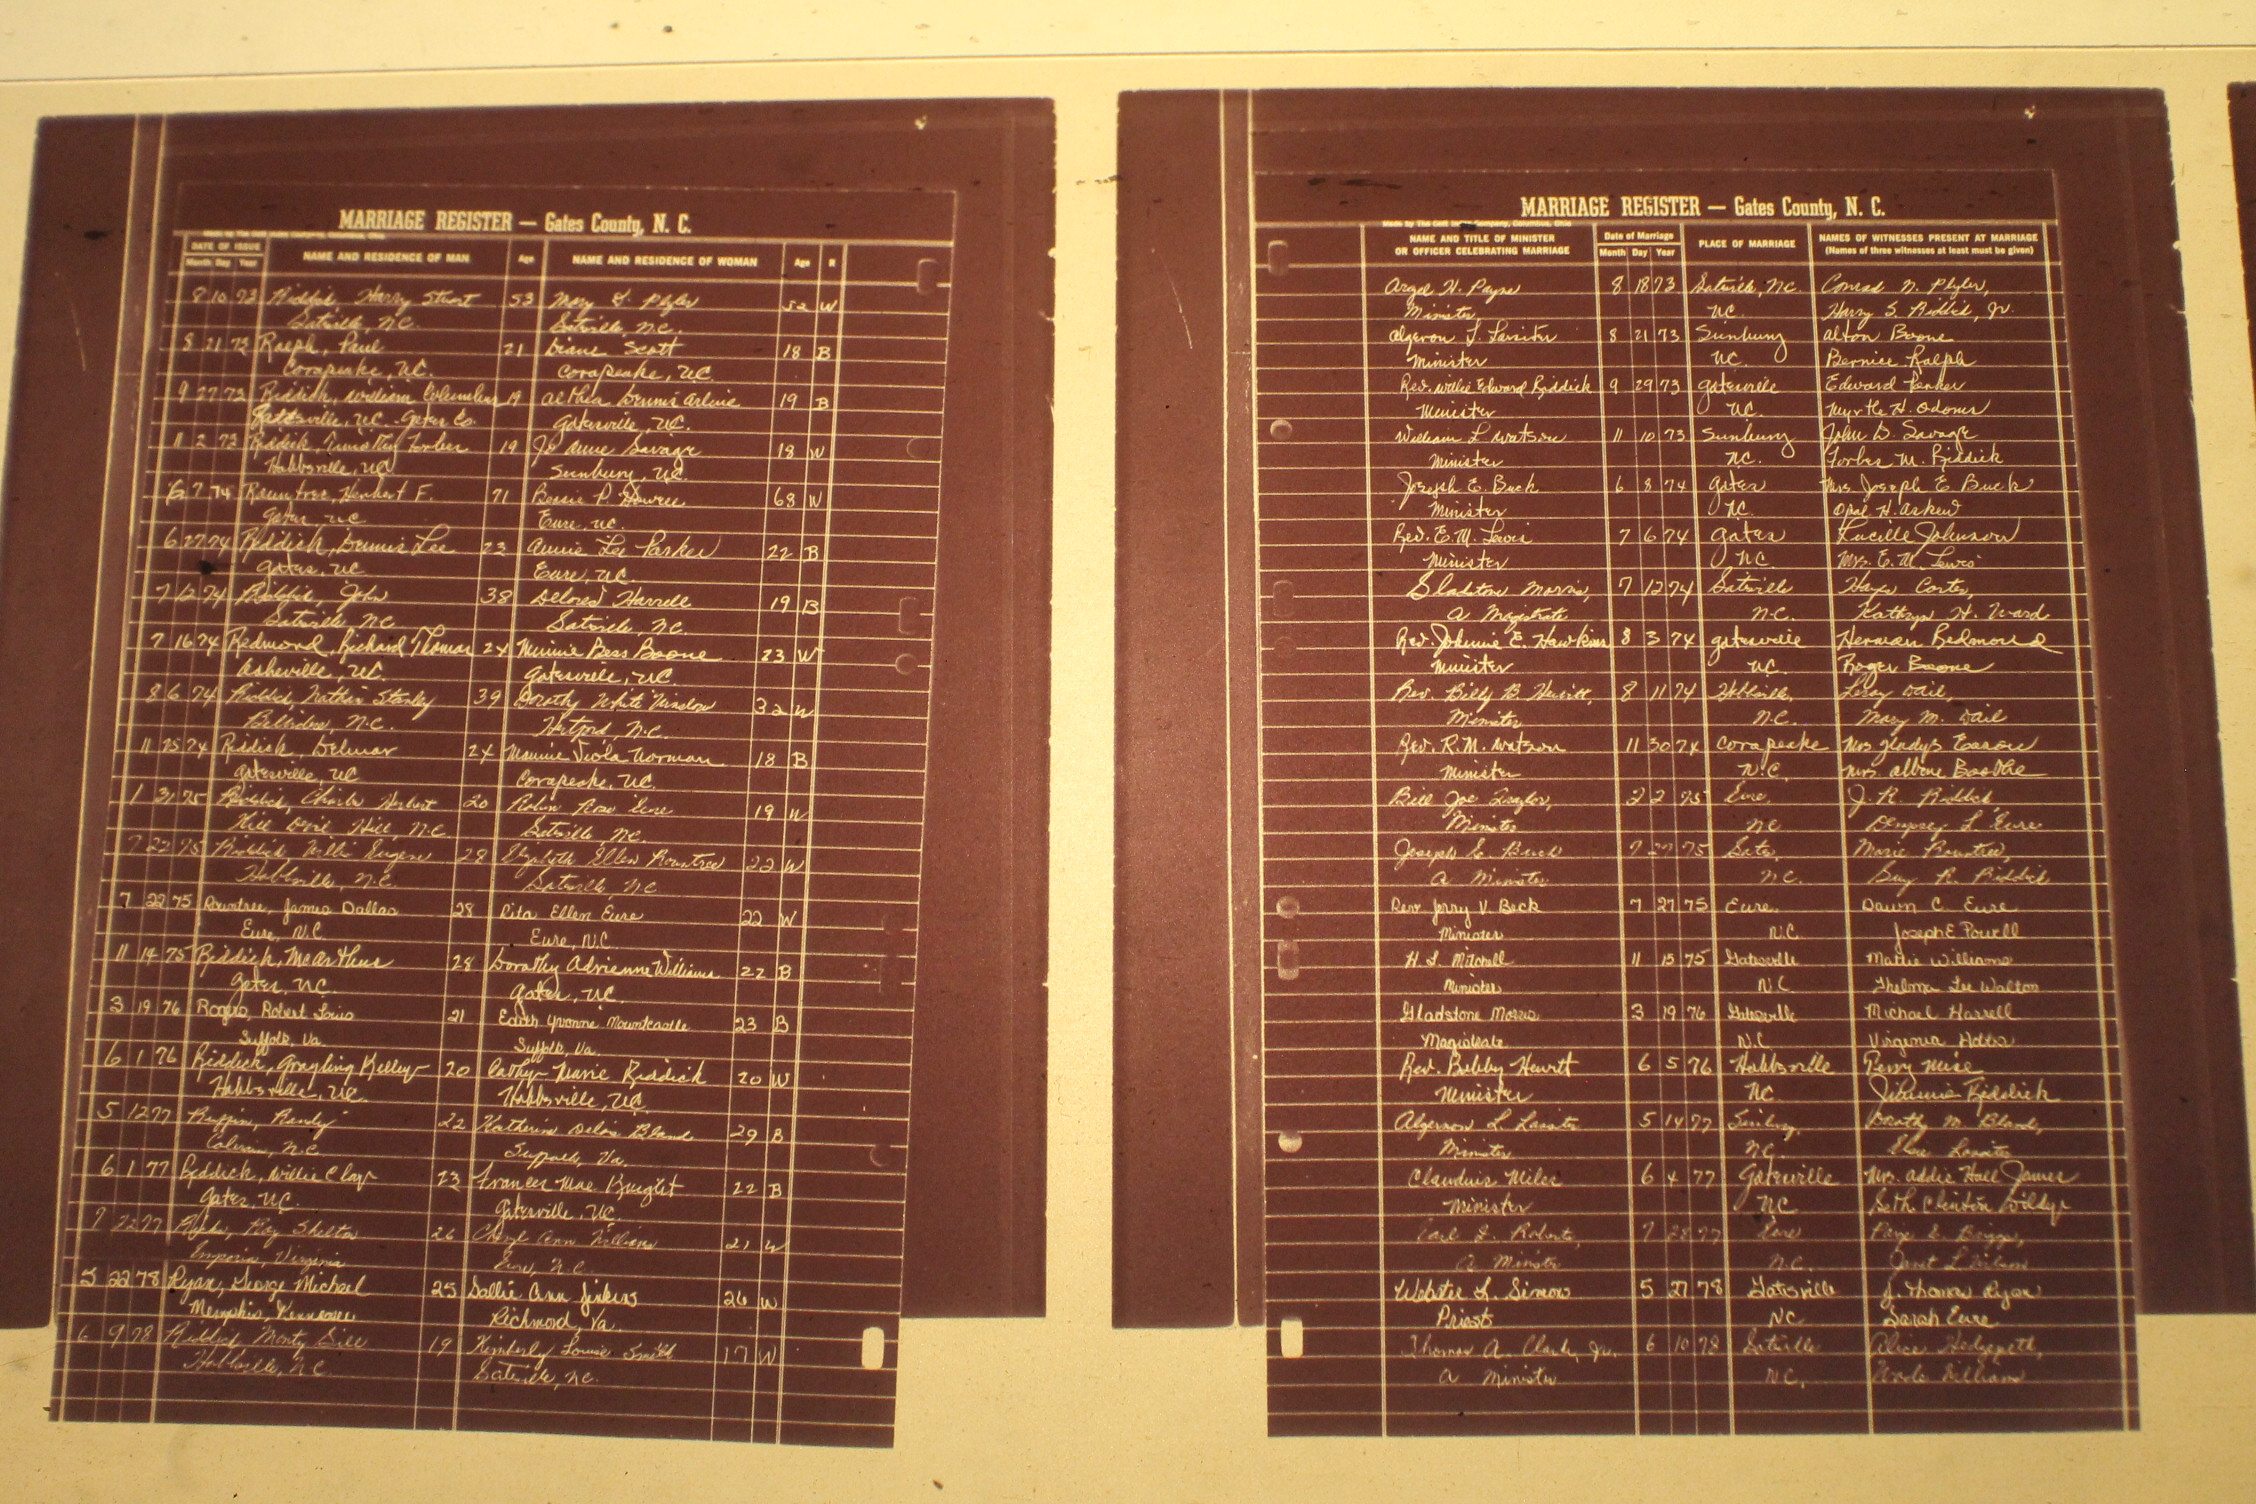 MARRIAGE REGISTER — Gates County, N. C.
DATE OF ISSUE
Month Day Year
NAME AND RESIDENCE OF MAN
Age
NAME AND RESIDENCE OF WOMAN
Age
R
8 10 73 Riddick, Harry Stuart 53 Mary L. Plyler 52 W
Gatesville, N.C. Gatesville, N.C.
8 21 73 Ralph, Paul 21 Diane Scott 18 B
Corapeake, N.C. Corapeake, N.C.
9 27 73 Riddick, William Columbus 19 Althia Dennis Arline 19 B
Gatesville, N.C. Gates Co. Gatesville, N.C.
11 2 73 Riddick, Timothy Forbes 19 Jo Anne Savage 18 W
Hobbsville, N.C. Sunbury, N.C.
6 7 74 Rountree, Herbert F. 71 Bessie P. 68 W
Gates, N.C. Eure, N.C.
6 27 74 Riddick, Dennis Lee 23 Annie Lee Parker 22 B
Gates, N.C. Eure, N.C.
7 12 74 Riddick, John 38 Delores Harrell 19 B
Gatesville, N.C. Gatesville, N.C.
7 16 74 Redmond, Richard Thomas 24 Minnie Bess Boone 23 W
Asheville, N.C. Gatesville, N.C.
8 6 74 Riddick, Nathan Stanley 39 Dorothy White Winslow 32 W
Belvidere, N.C. Hertford, N.C.
11 25 74 Riddick, Delmar 24 Mamie Viola Norman 18 B
Gatesville, N.C. Corapeake, N.C.
1 31 75 Riddick, Charles Herbert 20 Robin Rose Eure 19 W
Kill Devil Hill, N.C. Gatesville, N.C.
7 22 75 Riddick, Willis Eugene 28 Elizabeth Ellen Rountree 22 W
Hobbsville, N.C. Gatesville, N.C.
7 22 75 Rountree, James Dallas 28 Rita Ellen Eure 22 W
Eure, N.C. Eure, N.C.
11 14 75 Riddick, McArthur 28 Dorothy Adrienne Williams 22 B
Gates, N.C. Gates, N.C.
3 19 76 Rogers, Robert Louis 21 Edith Yvonne Mountcastle 23 B
Suffolk, Va. Suffolk, Va.
6 1 76 Riddick, Grayling Kelley 20 Cathy Marie Riddick 20 W
Hobbsville, N.C. Hobbsville, N.C.
5 12 77 Ruffin, Randy 22 Katherine Delois Bland 29 B
Colerain, N.C. Suffolk, Va.
6 1 77 Riddick, Willie Clay 23 Frances Mae Knight 22 B
Gates, N.C. Gatesville, N.C.
7 22 77 Ray Shelton 26 Cheryl Ann Williams 21 W
Emporia, Virginia Eure, N.C.
5 22 78 Ryan, George Michael 25 Sallie Ann Jinkins 26 W
Memphis, Tennessee Richmond, Va.
6 9 78 Riddick, Monty Dill 19 Kimberly Louise Smith 17 W
Hobbsville, N.C. Gatesville, N.C.
MARRIAGE REGISTER — Gates County, N. C.
NAME AND TITLE OF MINISTER
OR OFFICER CELEBRATING MARRIAGE
Date of Marriage
Month Day Year
PLACE OF MARRIAGE
NAMES OF WITNESSES PRESENT AT MARRIAGE
(Names of three witnesses at least must be given)
Argel H. Payne 8 18 73 Gatesville, N.C. Conrad N. Plyler,
Minister N.C. Harry S. Riddick, Jr.
Algeron L. Lassiter 8 21 73 Sunbury Alton Boone
Minister N.C. Bernice Ralph
Rev. Willie Edward Riddick 9 29 73 Gatesville Edward Parker
Minister N.C. Myrtle H. Odoms
William L Watson 11 10 73 Sunbury John D. Savage
Minister N.C. Forbes M. Riddick
Joseph E. Buck 6 8 74 Gates Mrs. Joseph E. Buck
Minister N.C. Opal H. Askew
Rev. E. M. Lewis 7 6 74 Gates Lucille Johnson
Minister N.C. Mrs. E. M. Lewis
Gladstone Morris, 7 12 74 Gatesville Hayes Carter,
A Magistrate N.C. Kathryn H. Ward
Rev. Johnnie E. Hawkins 8 3 74 Gatesville Herman Redmond
Minister N.C. Roger Boone
Rev. Billy B. Hewitt, 8 11 74 Hobbsville, Leroy Dail,
Minister N.C. Mary M. Dail
Rev. R. M. Watson 11 30 74 Corapeake Mrs Gladys Eason
Minister N.C. Mrs. Boothe
Bill Joe 2 2 75 Eure, J. R. Riddick,
Minister N.C. Dempsey L. Eure
Joseph E. Buck 7 27 75 Gates, Marie Rountree,
A Minister N.C. Guy R. Riddick
Rev Jerry V. Beck 7 27 75 Eure Dawn C. Eure
Minister N.C. Joseph E Powell
H. L. Mitchell 11 15 75 Gatesville Mattie Williams
Minister N.C Thelma Lee Walton
Gladstone Morris 3 19 76 Gatesville Michael Harrell
Magistrate N.C. Virginia
Rev. Bobby Hewitt 6 5 76 Hobbsville Perry Mise
Minister N.C. Jimmie Riddick
Algernon L Lassiter 5 14 77 Sunbury, Dorothy M. Bland,
Minister N.C. Lassiter
Claudius Miles 6 4 77 Gatesville Mrs. Addie Hall James
Minister N.C Seth Clinton
Earl L. Roberts, 7 28 77 Eure Faye E. Briggs,
A Minister N.C. Janet L Wilson
Webster L. Simons 5 27 78 Gatesville J. Thomas Ryan
Priest N.C Sarah Eure
Thomas A. Clark, Jr. 6 10 78 Gatesville Alice Hedgepeth,
A Minister N.C. William